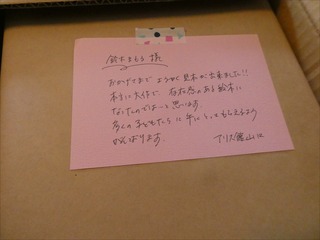 鈴木まもる 様
おかげさまで ようやく 見本が 出来ました!!
本当に 大作で、存在感のある 絵本に
なったのでは…と 思います。
多くの 子どもたち に 手に とって もらえるよう
がんばります。
アリス館 山口